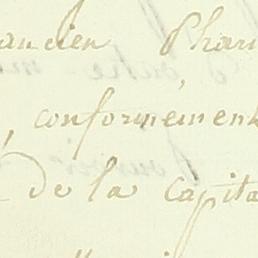 ancien Phar
, conformément
de la capita